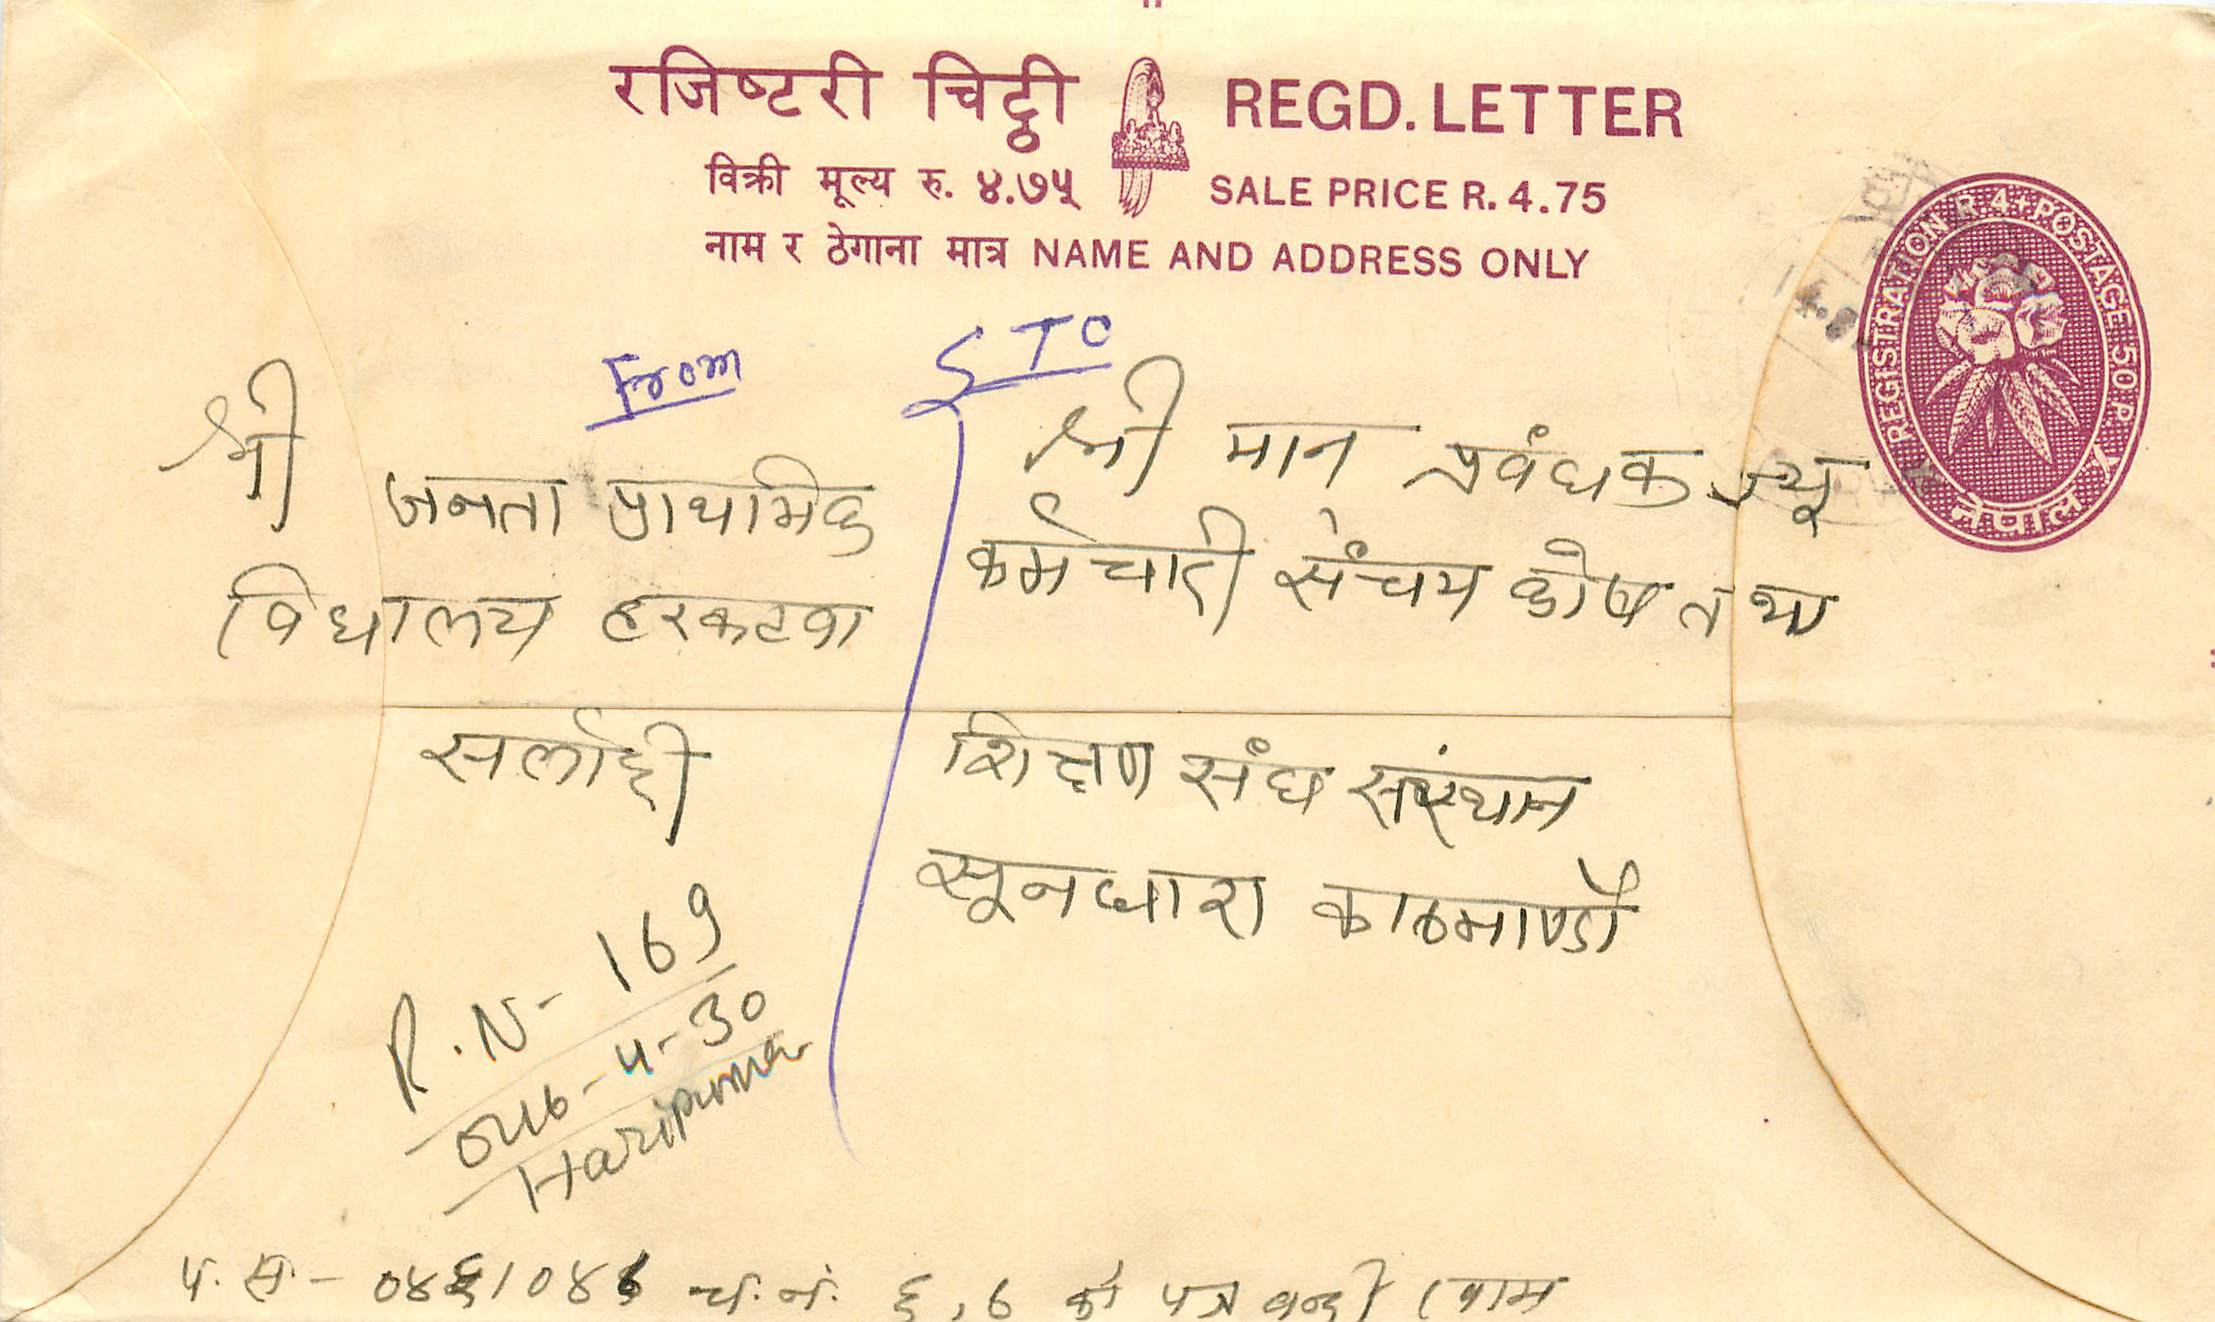 रजिष्टरी चिट्ठी REGD. LETTER
विक्री मूल्य रु. ४.७५ SALE PRICE R. 4.75
नाम र ठेगाना मात्र NAME AND ADDRESS ONLY
REGISTRATION R 4+POSTAGE 50 P.
नेपाल
From
श्री जनता प्राथमिक
विधालय हरकटवा
सर्लाही
TO
श्री मान प्रवंधक ज्यू
कर्मचारी संचय कोष तथा
शिक्षण संघ संस्थान
सूनधारा काठमाण्डौ
R.N- 169
-4-30
Haripurwa
प. स.- च. नं. ६,७ को पत्र वन्दी खाम